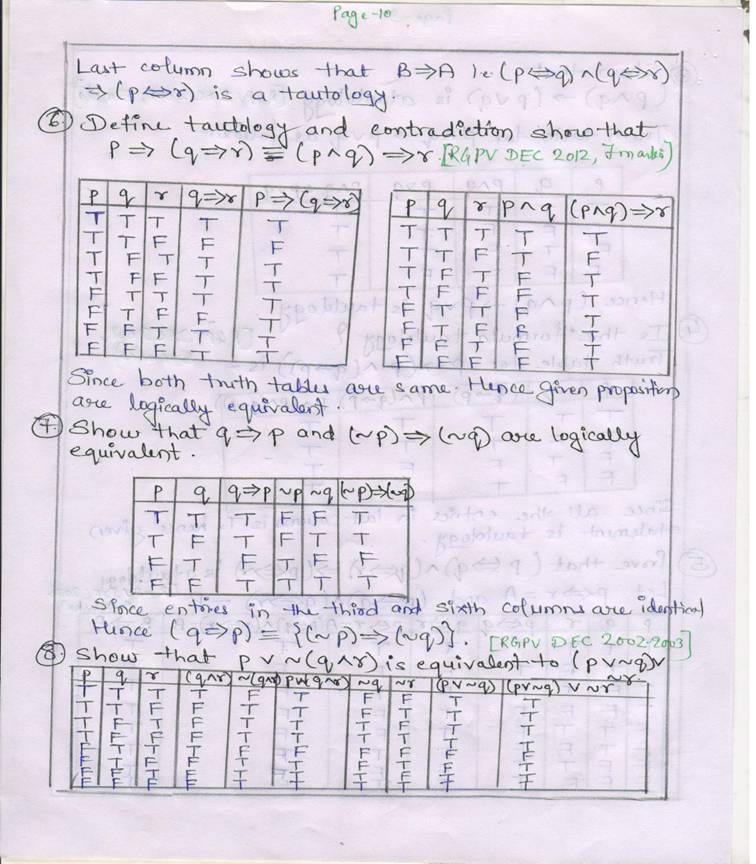 Page-10
Last column shows that B⇒A i.e (p⇔q) ∧ (q⇔r)
⇒ (p⇔r) is a tautology.
6. Define tautology and contradiction show that
p ⇒ (q⇒r) ≡ (p∧q) ⇒ r. [RGPV DEC 2012, 7 marks]
p q r q⇒r p⇒(q⇒r)
T T T T T
T T F F F
T F T T T
T F F T T
F T T T T
F T F F T
F F T T T
F F F T T
p q r p∧q (p∧q)⇒r
T T T T T
T T F T F
T F T F T
T F F F T
F T T F T
F T F F T
F F T F T
F F F F T
Since both truth tables are same. Hence given proposition
are logically equivalent.
7. Show that q⇒p and (~p)⇒(~q) are logically
equivalent.
p q q⇒p ~p ~q (~p)⇒(~q)
T T T F F T
T F T F T T
F T F T F F
F F T T T T
Since entries in the third and sixth columns are identical
Hence (q⇒p) ≡ {(~p)⇒(~q)}. [RGPV DEC 2002-2003]
8. Show that p∨~(q∧r) is equivalent to (p∨~q)∨
~r.
p q r (q∧r) ~(q∧r) p∨~(q∧r) ~q ~r (p∨~q) (p∨~q) ∨ ~r